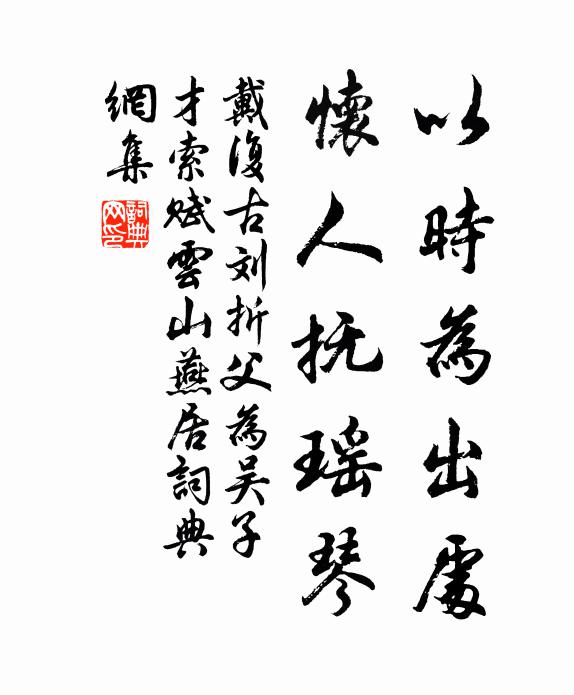 以時為出處
懷人抚瑶琴
戴復古刘折父為吴子
才索赋雲山燕居詞典
網集
詞典网印